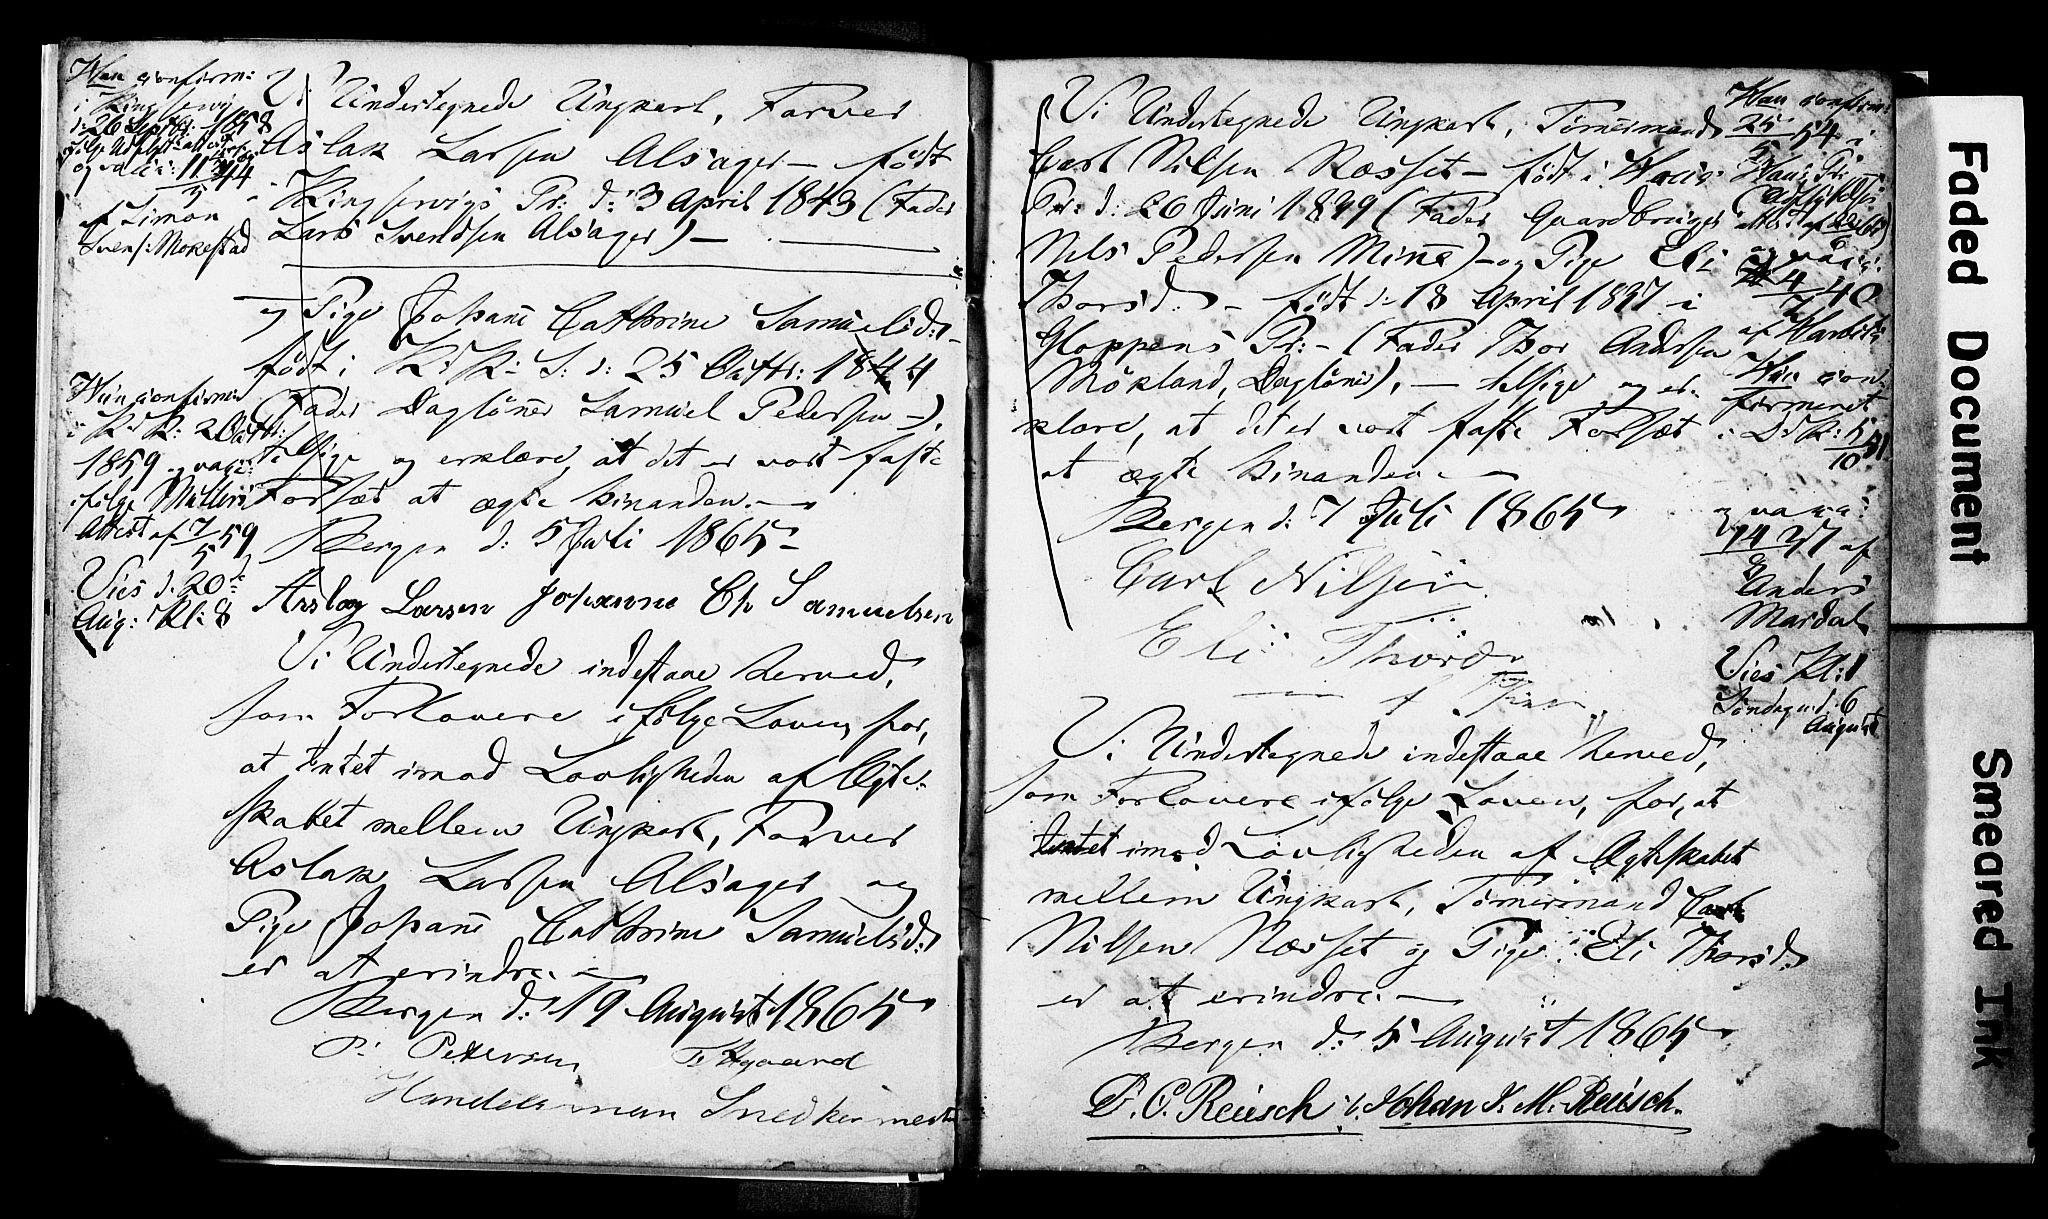 Han confirm:
i Kinservig
d: 26 Septbr: 1858
ifølge Attest
og vacc: 11/5 44
af Simon
Svens: Mokestad
Vi Undertegnede Ungkarl, Farver
Aslak Larsen Alsager – født i
Kinservigs Pr: d: 3 April 1843 (Fader
Lars Svendsen Alsager) –
og Pige Johanne Cathrine Samuelsd: –
født i K: K: S: d: 25 Octbr: 1844
(Fader Dagløner Samuel Pedersen –),
tilsige og erklære, at det er vort faste
Forsæt at ægte hinanden. –
Bergen d: 5 Juli 1865 –
Aslag Larsen Johanne Ch Samuelsen
Hun confirm:
i K: K: 2 Octbr:
1859 og vacc:
ifølge Müllers
Attest af 7/5 59
Vies d: 20de
Aug: Kl: 8
Vi Undertegnede indestaae herved,
som Forlovere ifølge Loven, for,
at Intet imod Lovligheden af Ægte-
skabet mellem Ungkarl, Farver
Aslak Larsen Alsager og
Pige Johanne Cathrine Samuelsd:
er at erindre. –
Bergen d: 19 August 1865
P: Petersen
Handelsman Snedkermester
Vi Undertegnede Ungkarl, Tømmermand
Carl Nilsen Næsset – født i
Pr: d: 26 Juni 1839 (Fader Gaardbruger
Nils Pedersen) – og Pige Eli
Thorsd: – født d: 18 April 1837 i
Gloppens Pr: – (Fader Thor Andersen
Mökland, Dagløner), – tilsige og er-
klare, at det er vort faste Forsæt
at ægte hinanden. –
Bergen d: 7 Juli 1865
Carl Nilsen
Eli Thord
Han confirm:
25/5 54 i
Hans Pr:
og vacc:
4/7 40
af
Hun con-
firmeret
i D: K: 5/10 51
og vacc:
14 37 af
Anders
Mardal
Vies Kl: 1
Søndag d: 6
August
Vi Undertegnede indestaae herved,
som Forlovere ifølge Loven, for, at
Intet imod Lovligheden af Ægteskabet
mellem Ungkarl, Tømmermand Carl
Nilsen Næsset og Pige Eli Thorsd:
er at erindre. –
Bergen d: 5 August 1865
P. C. Reusch Johan J. M. Reusch.
Faded Document
Smeared Ink